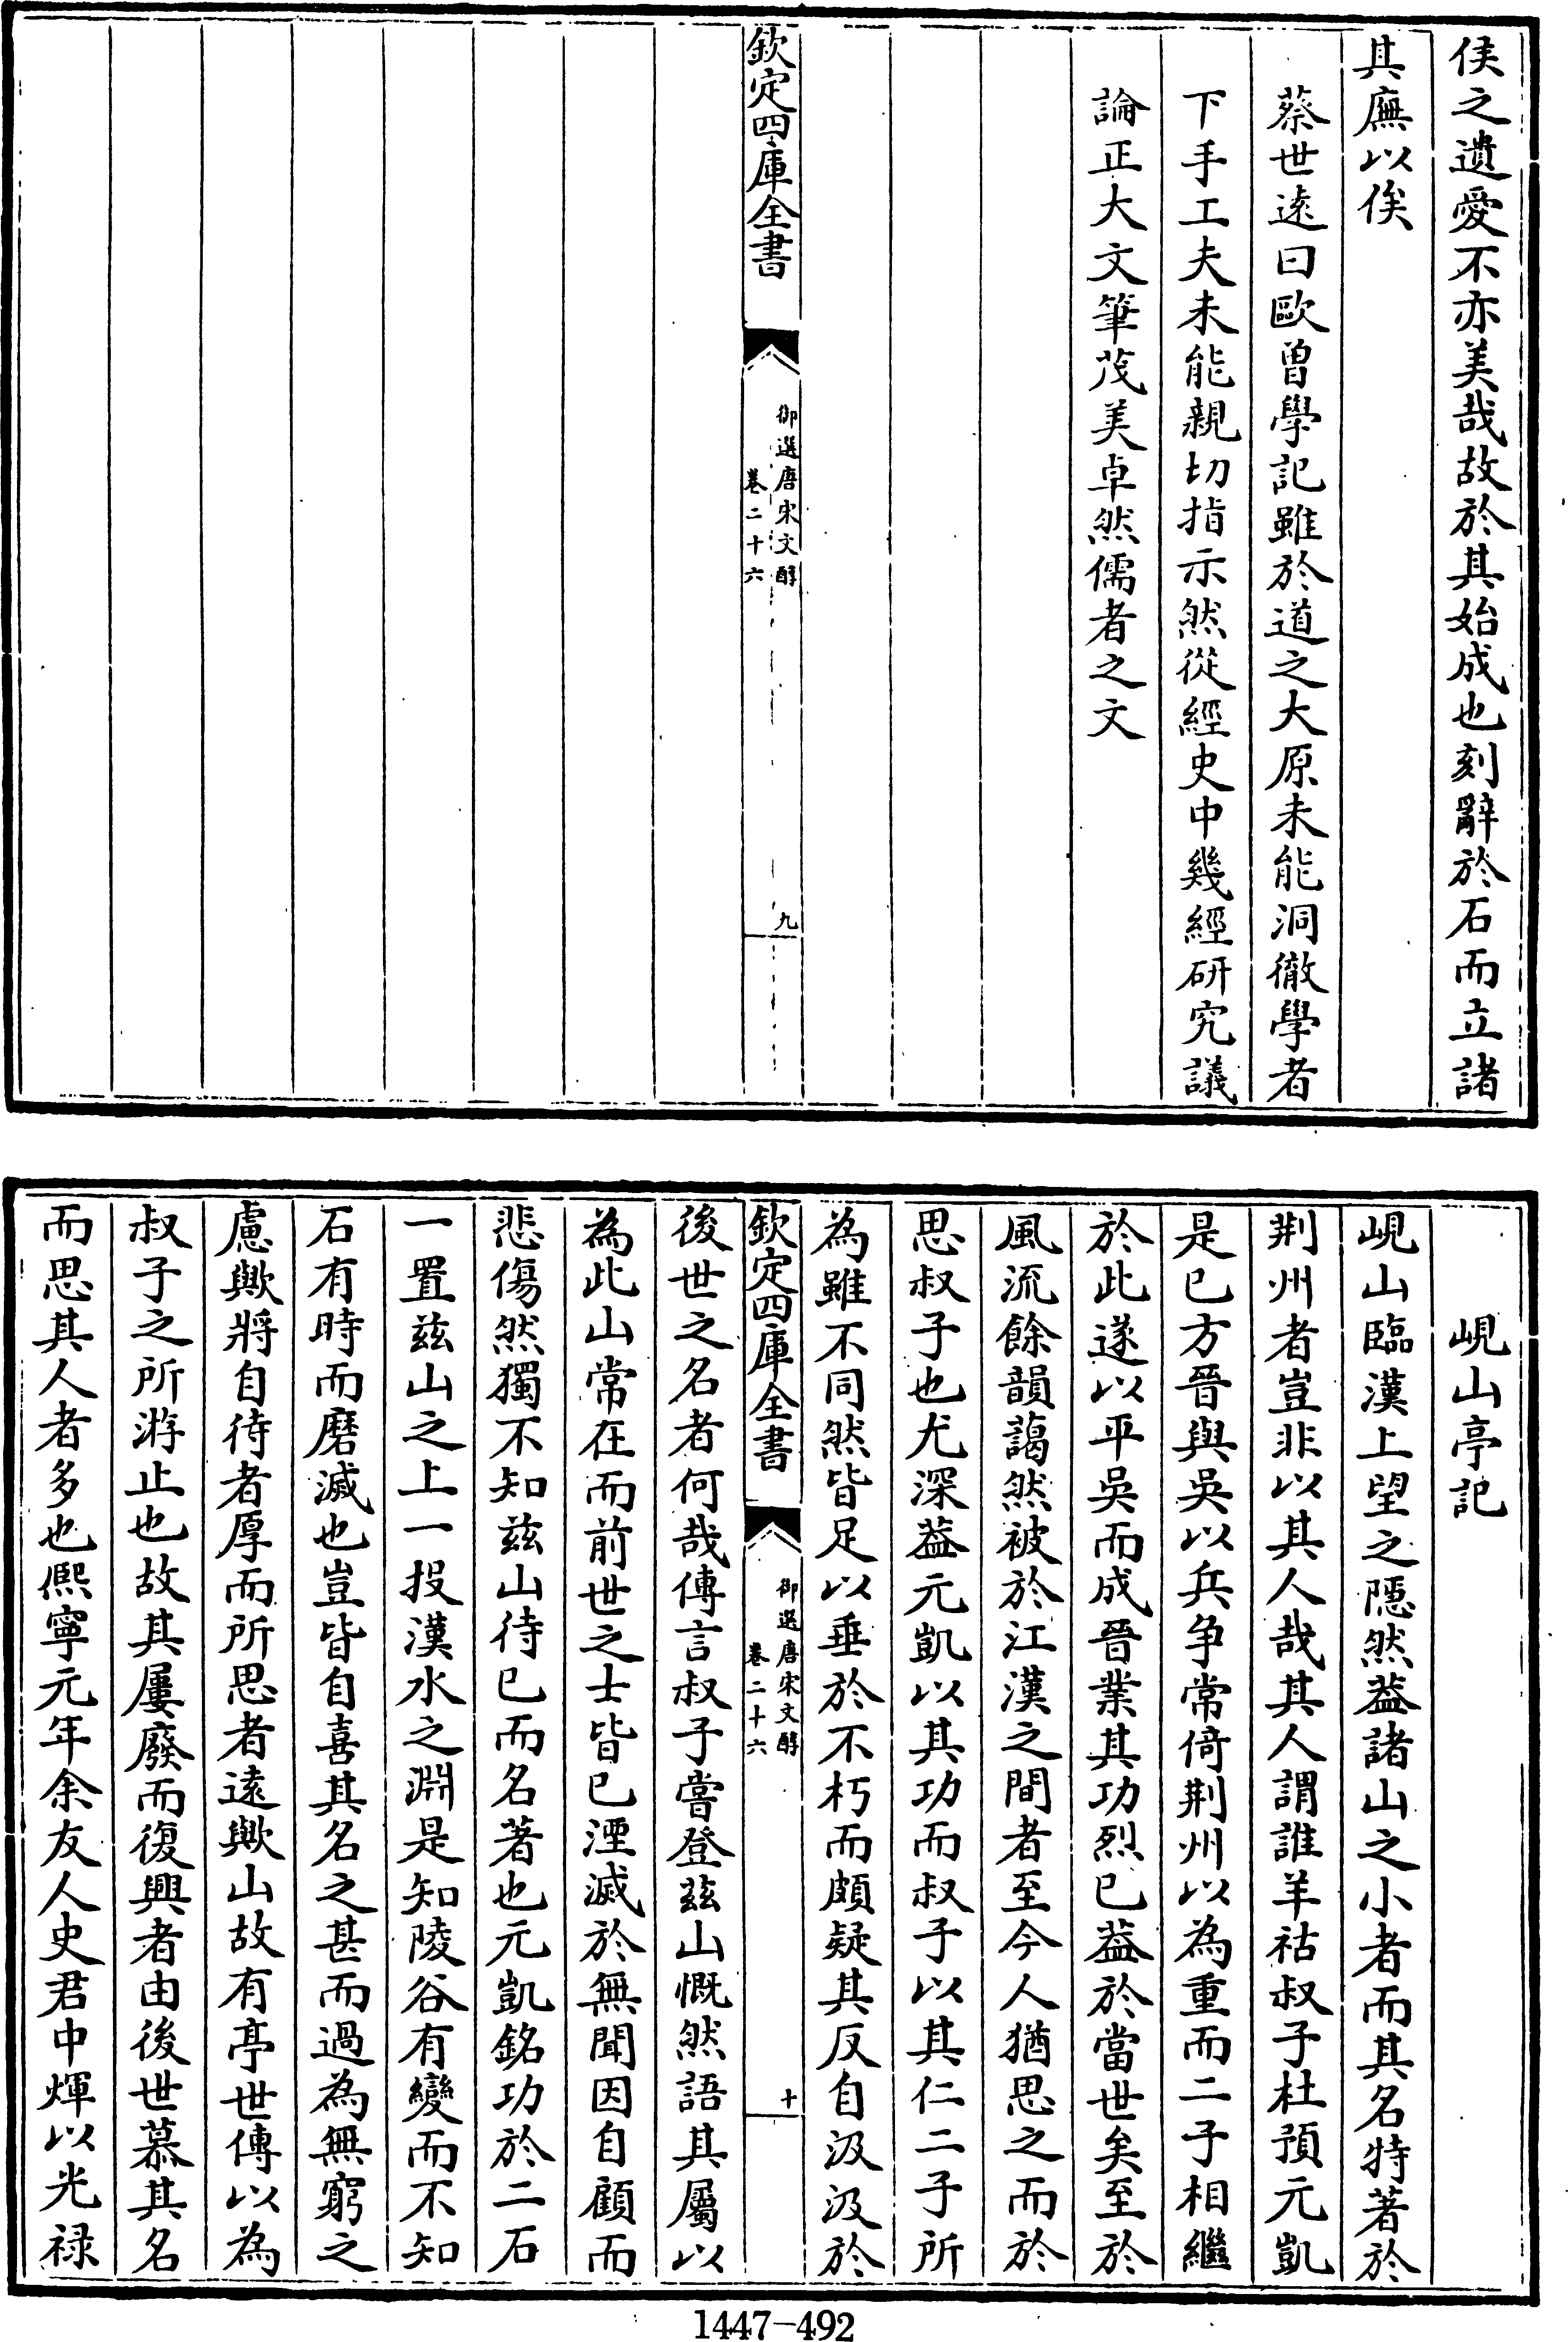 侯之遺愛不亦美哉故於其始成也刻辭於石而立諸
其廡以俟
蔡世遠曰歐曽學記雖於道之大原未能洞徹學者
下手工夫未能親切指示然從經史中幾經研究議
論正大文筆茂美卓然儒者之文
欽定四庫全書
御選唐宋文醇
卷二十六
九
峴山亭記
峴山臨漢上望之隠然葢諸山之小者而其名特著於
荆州者豈非以其人哉其人謂誰羊祜叔子杜預元凱
是已方晉與吳以兵爭常倚荆州以為重而二子相繼
於此遂以平吳而成晉業其功烈已葢於當世矣至於
風流餘韻藹然被於江漢之間者至今人猶思之而於
思叔子也尤深葢元凱以其功而叔子以其仁二子所
為雖不同然皆足以垂於不朽而頗疑其反自汲汲於
欽定四庫全書
御選唐宋文醇
卷二十六
十
後世之名者何哉傳言叔子嘗登兹山慨然語其屬以
為此山常在而前世之士皆已湮滅於無聞因自顧而
悲傷然獨不知兹山待已而名著也元凱銘功於二石
一置兹山之上一投漢水之淵是知陵谷有變而不知
石有時而磨滅也豈皆自喜其名之甚而過為無窮之
慮歟將自待者厚而所思者逺歟山故有亭世傳以為
叔子之所游止也故其屢廢而復興者由後世慕其名
而思其人者多也熈寧元年余友人史君中煇以光禄
1447-492